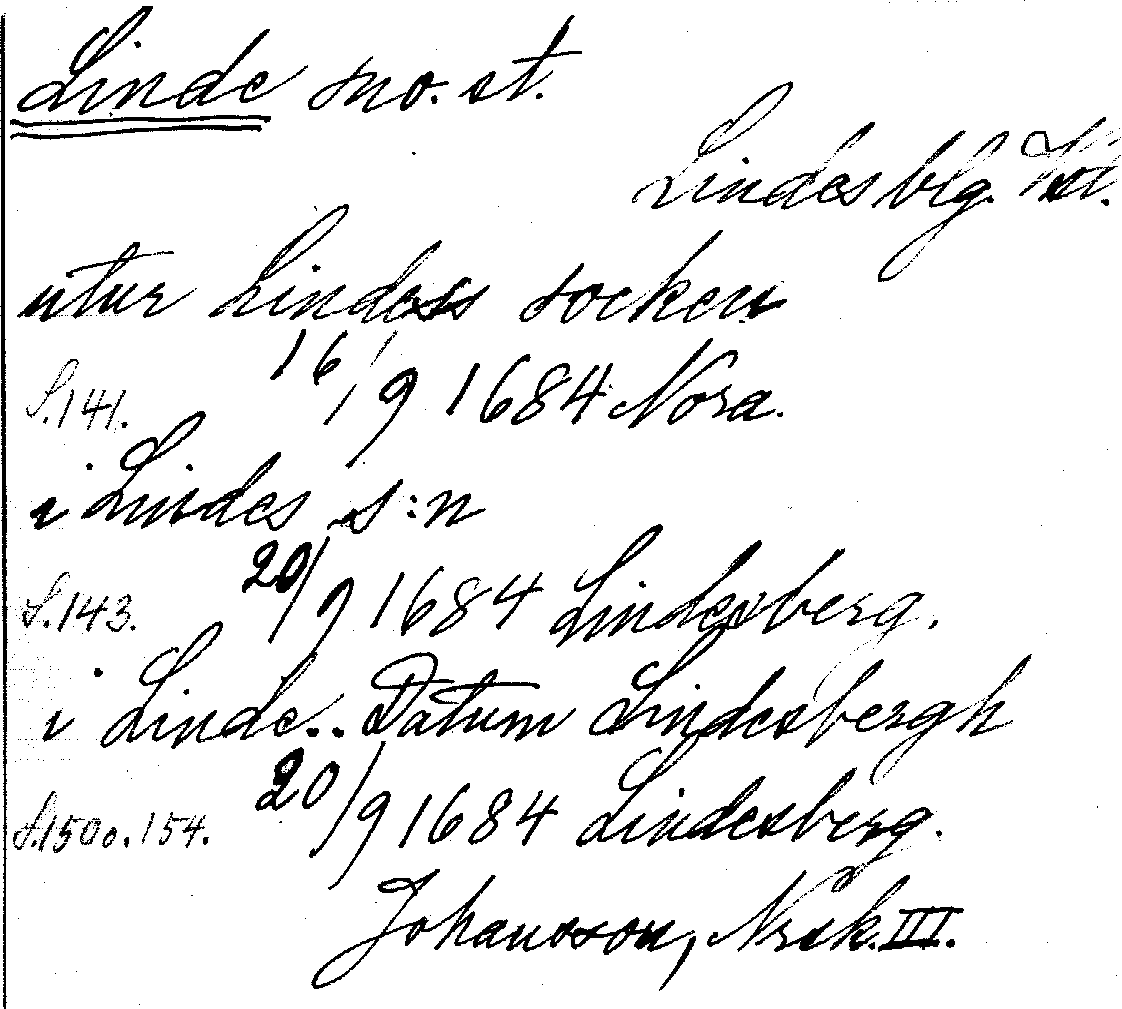 Linde sno. st.
Lindesblg.
utur Lindess socken
S.141. 16/9 1684 Nora.
i Lindes s:n
S.143. 20/9 1684 Lindesberg.
i Linde.. Datum Lindesbergh
S.150 o. 154. 20/9 1684 Lindesberg.
Johansson, Nrsk. III.